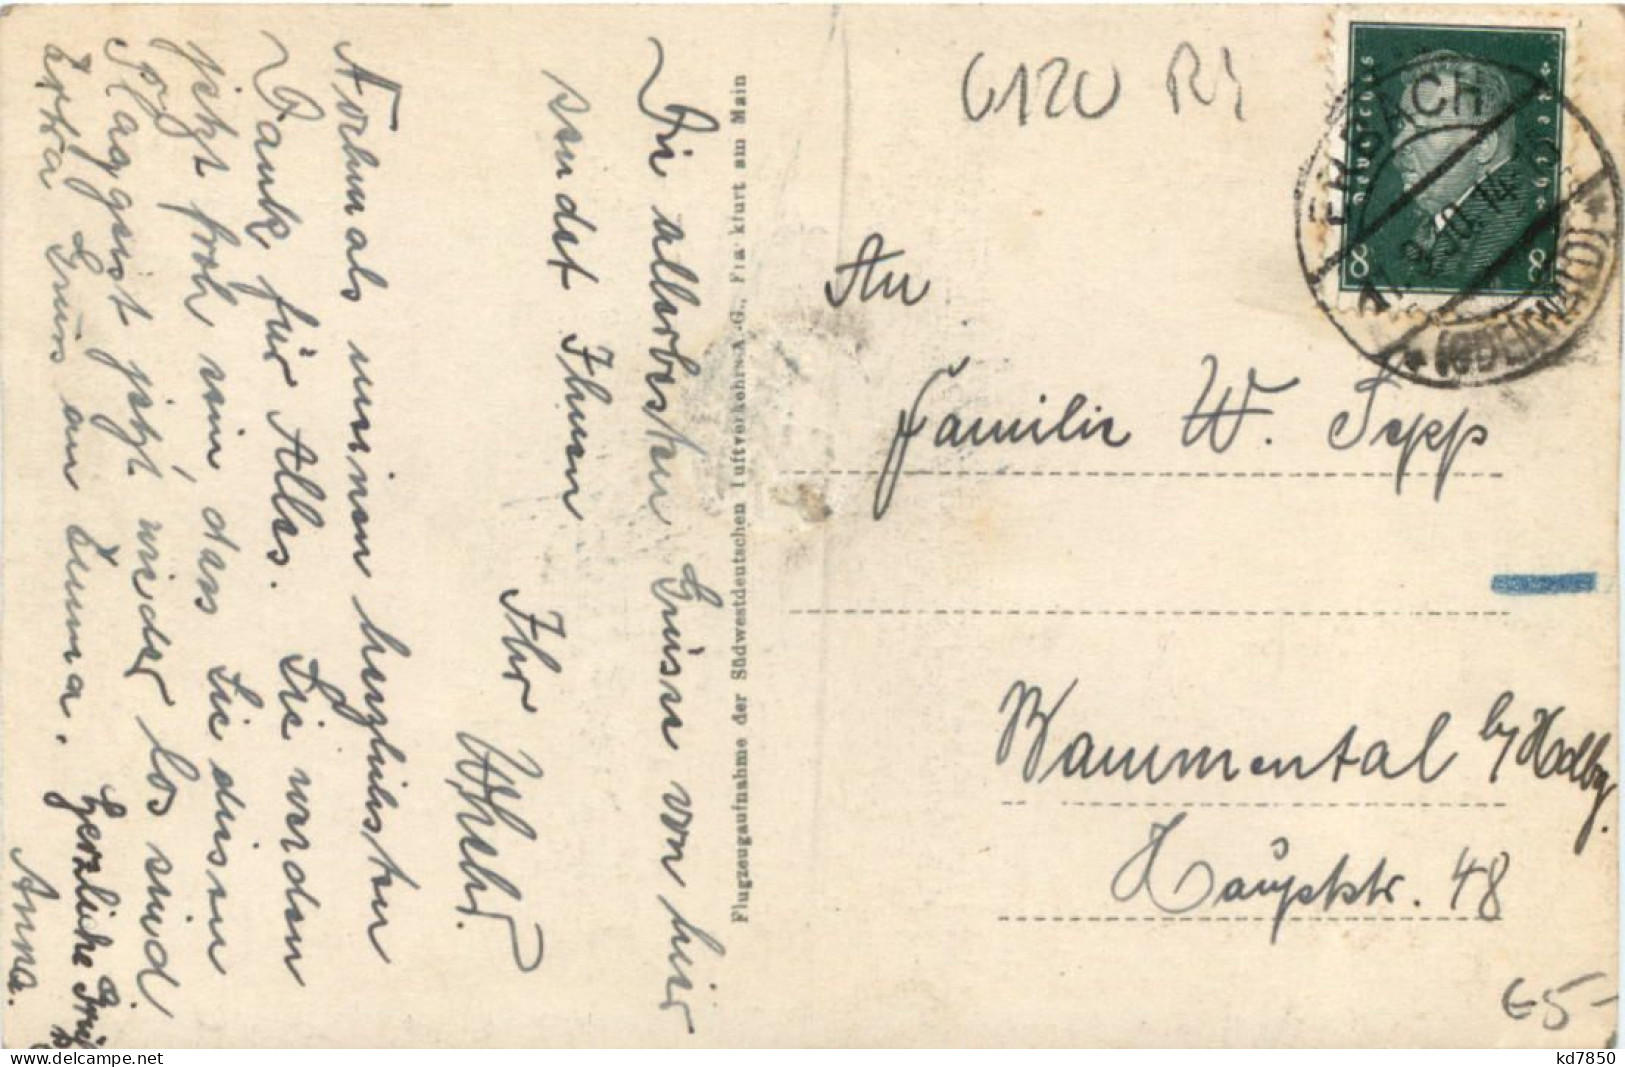 6120
Deutsches Reich
8 8
ERBACH
(ODENWALD)
Die allerbesten Grüsse von hier
sendet Ihnen
Ihr
Nochmals meinen herzlichsten
Dank für Alles. Sie werden
jetzt froh sein, dass Sie diesen
Plaggeist jetzt wieder los sind
Extra Gruss an Emma.
Herzliche
Anna.
Flugzeugaufnahme der Südwestdeutschen Luftverkehrs-A.-G., Frankfurt am Main
An
Familie W. Sepp
Bammental b/ Hdlbg.
Hauptstr. 48
€5-
kd7850